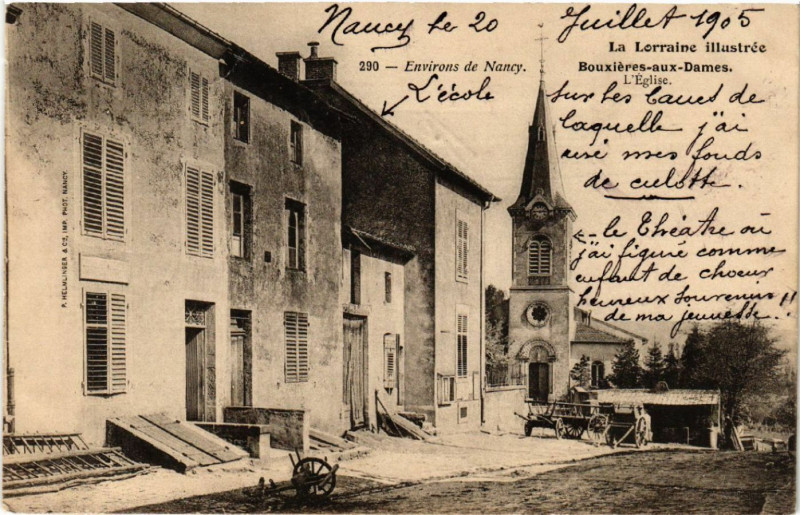 Nancy le 20 Juillet 1905
La Lorraine illustrée
290 — Environs de Nancy.
Bouxières-aux-Dames.
L'Église.
L'école
sur les bancs de
laquelle j'ai
usé mes fonds
de culotte.
le théâtre où
j'ai figuré comme
enfant de choeur
heureux souvenirs
de ma jeunesse..!!
P. HELMLINGER & Cie, IMP. PHOT. NANCY.